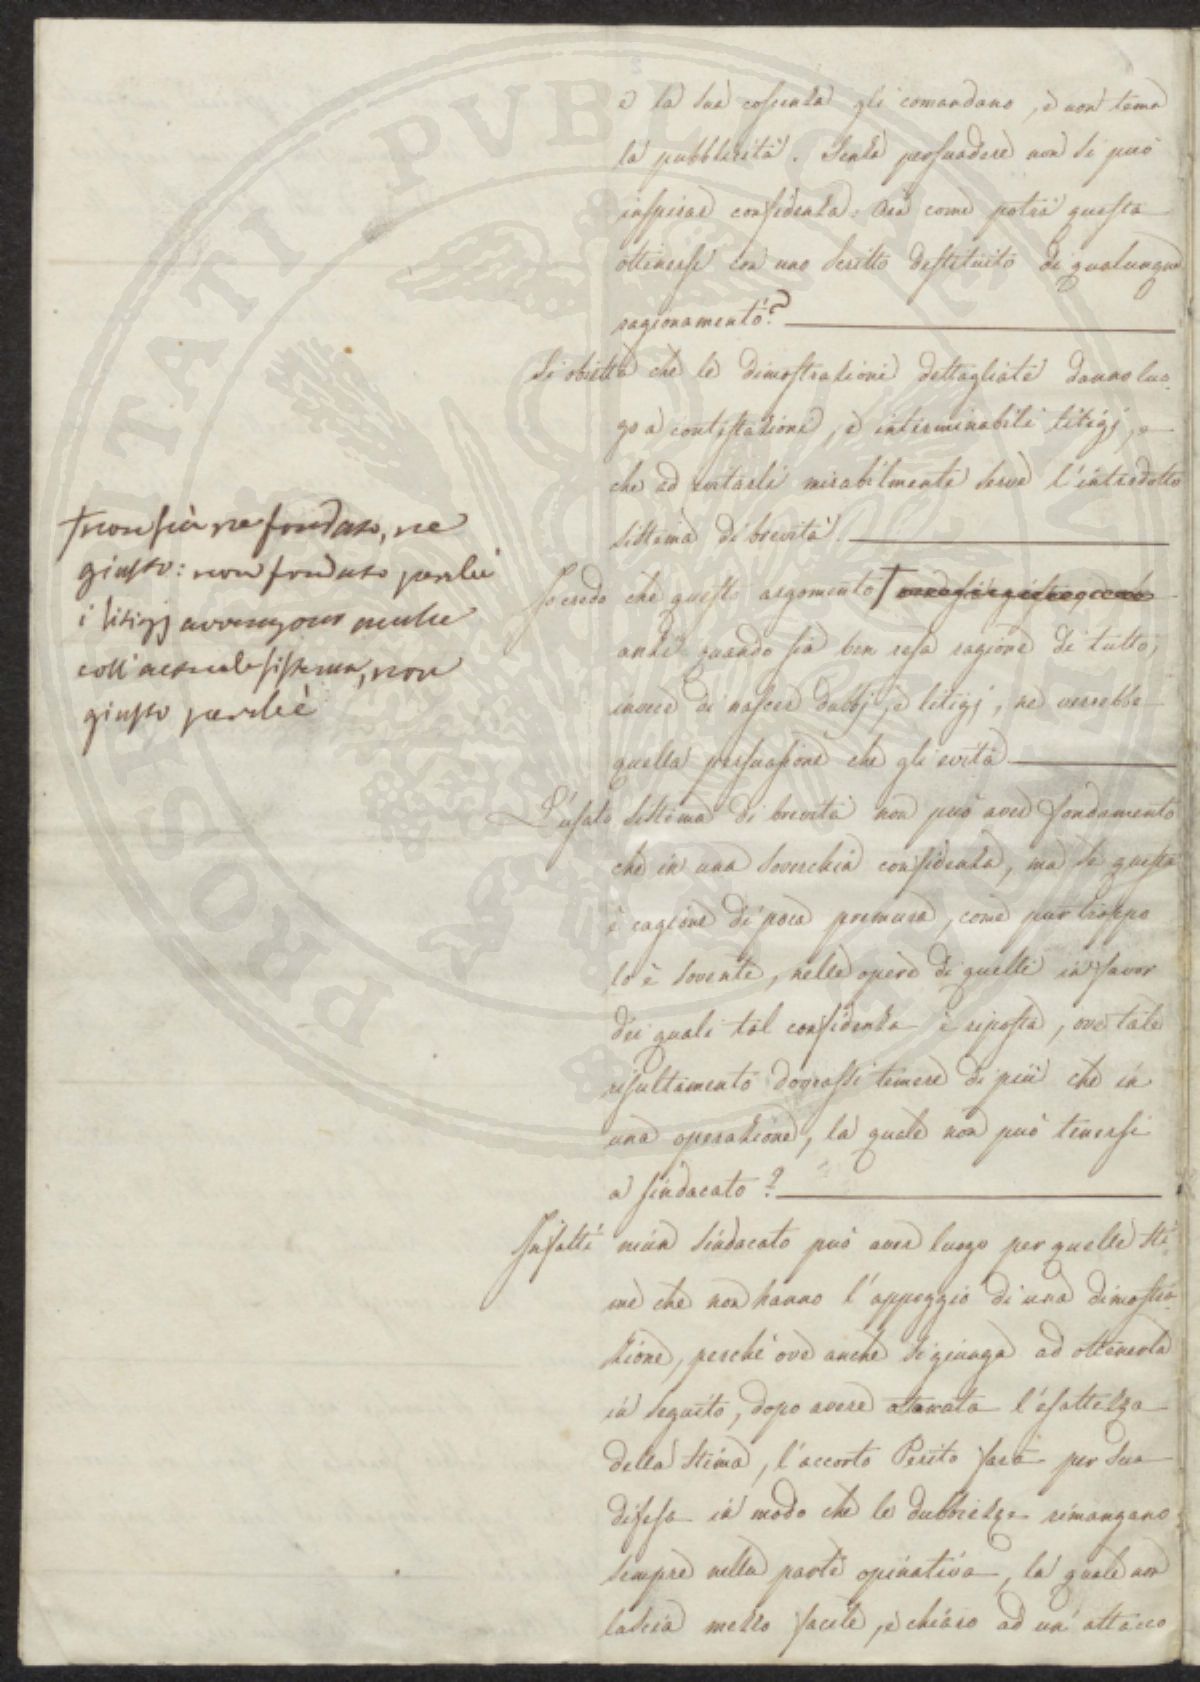 e la sua coscienza gli comandano, e non tema
la pubblicità. Senza persuadere non si può
inspirar confidenza. Ora come potrà questa
ottenersi con uno scritto destituito di qualunque
ragionamento?
Si obietta che le dimostrazioni dettagliate danno luo-
go a contestazione, e interminabili litigj, e
che ad evitarli mirabilmente serve l'introdotto
sistema di brevità.
Io credo che questo argomento †
anzi quando sia ben resa ragione di tutto,
invece di nascer dubbj, e litigj, ne verrebbe
quella persuasione che gli evita
L'usato sistema di brevità non può aver fondamento
che in una soverchia confidenza, ma se questa
è cagione di poca premura, come pur troppo
lo è sovente, nelle opere di quelli in favor
dei quali tal confidenza è riposta, ove tale
risultamento dovrassi temere di più che in
una operazione, la quale non può tenersi
a sindacato?
Infatti niun sindacato può aver luogo per quelle sti-
me che non hanno l'appoggio di una dimostra-
zione, perchè ove anche si giunga ad ottenerla
in seguito, dopo avere attaccata l'esattezza
della stima, l'accorto Perito farà per sua
difesa in modo che le dubbiezze rimangano
sempre nella parte opinativa, la quale non
lascia mezzo facile, e chiaro ad un attacco
† non sia ne fondato, ne
giusto: non fondato perchè
i litigj avvengono anche
coll'attuale sistema, non
giusto perchè
PROSPERITATI PVBLICAE